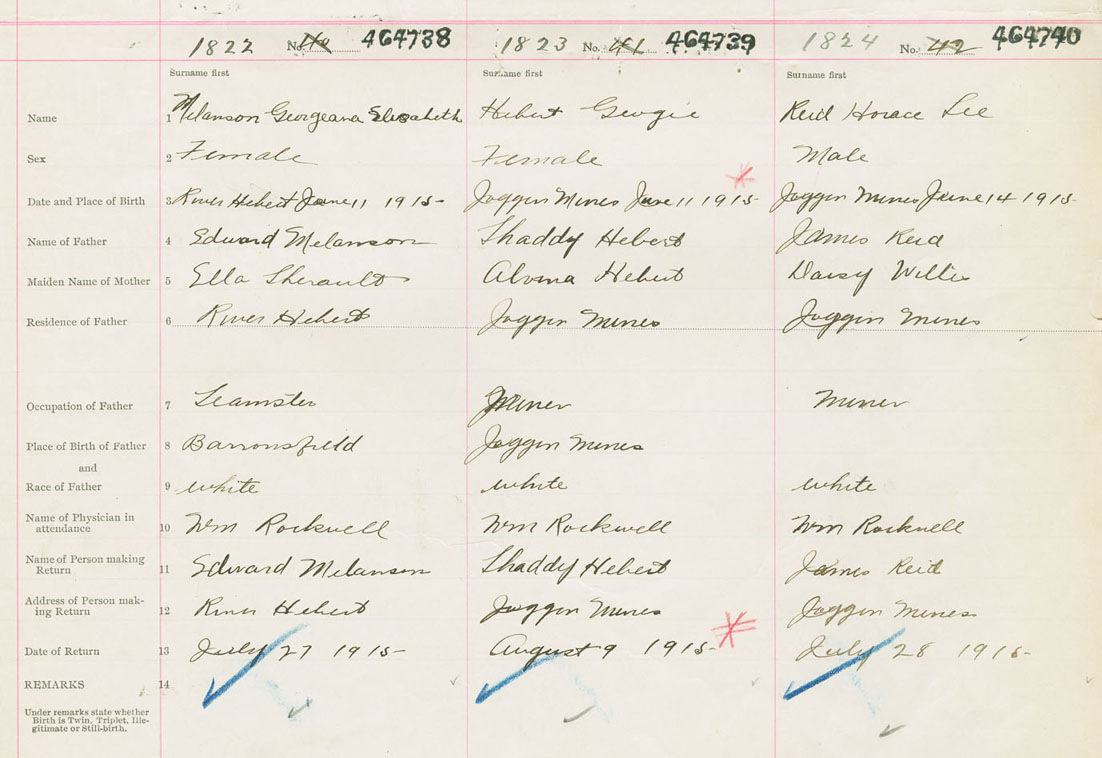 1822 No. 40 464738 1823 No. 41 464739 1824 No. 42 464740
Surname first Surname first Surname first
Name 1 Melanson Georgeana Elizabeth Hebert Georgie Reid Horace Lee
Sex 2 Female Female Male
Date and Place of Birth 3 River Hebert June 11 1915 Joggin Mines June 11 1915 Joggin Mines June 14 1915
Name of Father 4 Edward Melanson Thaddy Hebert James Reid
Maiden Name of Mother 5 Ella Therault Alvina Hebert Daisy Willie
Residence of Father 6 River Hebert Joggin Mines Joggin Mines
Occupation of Father 7 Teamster Miner Miner
Place of Birth of Father 8 Barronsfield Joggin Mines
and
Race of Father 9 White White White
Name of Physician in
attendance 10 Wm Rockwell Wm Rockwell Wm Rockwell
Name of Person making
Return 11 Edward Melanson Thaddy Hebert James Reid
Address of Person mak-
ing Return 12 River Hebert Joggin Mines Joggin Mines
Date of Return 13 July 27 1915 August 9 1915 July 28 1915
REMARKS 14
Under remarks state whether
Birth is Twin, Triplet, Ille-
gitimate or Still-birth.